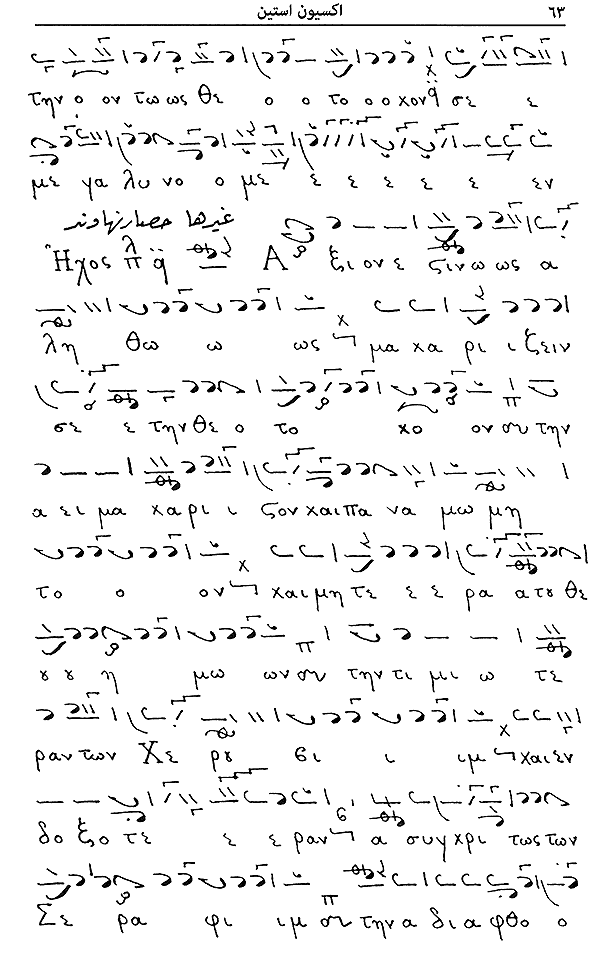 ٦٣ اكسيون استين
την ο ον τω ως θε ο ο το ο ο κον σε ε
με γα λυ νο ο με ε ε ε ε ε εν
غيرها حصار نهاوند
Ἦχος πλ α Α ξι ον ε στιν ω ως α
λη θω ω ως μα κα ρι ι ζειν
σε ε την θε ο το κο ον συ την
α ει μα κα ρι ι στον και πα να μω μη
το ο ον και μη τε ε ε ρα α του θε
ου ου η μω ων συ την τι μι ω τε
ραν των Χε ρου βι ι ιμ και εν
δο ξο τε ε ε ραν α συγκρι τως των
Σε ρα φι ιμ συ την α δι α φθο ο